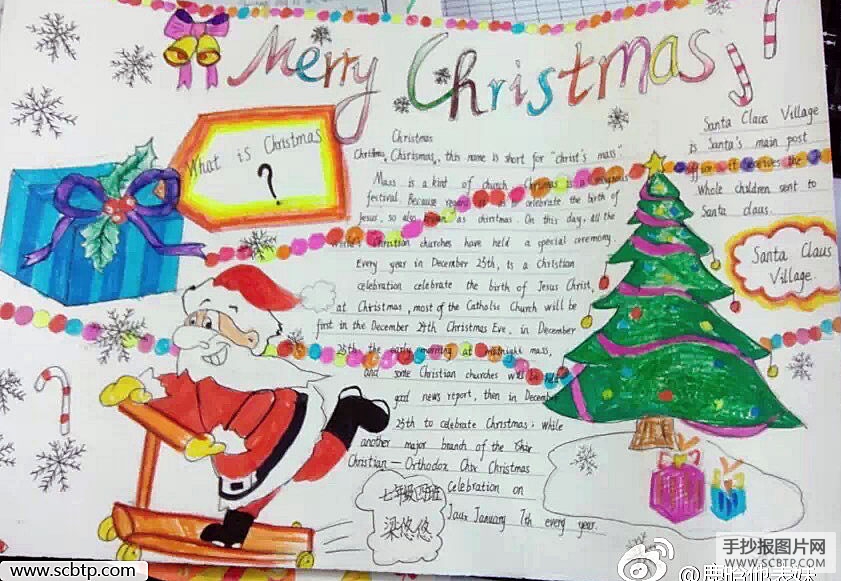 Merry Christmas
What is Christmas
?
Christmas
Christmas, Chirismas, this name is short for "christ's mass"
Mass is a kint of church. Christmas is a religious
festival. Because regard it as to celebrate the birth of
Jesus, so also known as christmas. On this day, all the
world's Christian churches have held a special ceremony.
Every year in December 25th, is a Christian
celebration celebrate the birth of Jesus Christ,
at Christmas, most of the Catholic Church will be
first in the December 24th Christmas Eve, in December
25th the early morning at midnight mass,
and some Christian churches will be held
good news report, then in December
25th to celebrate Christmas; while
another major branch of the
Christian — Orthodox Christmas
Celebration on
January 7th every year.
Santa Claus Village
is Santa's main post
office it receives the
Whole children sent to
Santa claus.
Santa Claus
Village.
七年级四班
梁悠悠
www.scbtp.com
手抄报图片网
WWW.SCBTP.COM